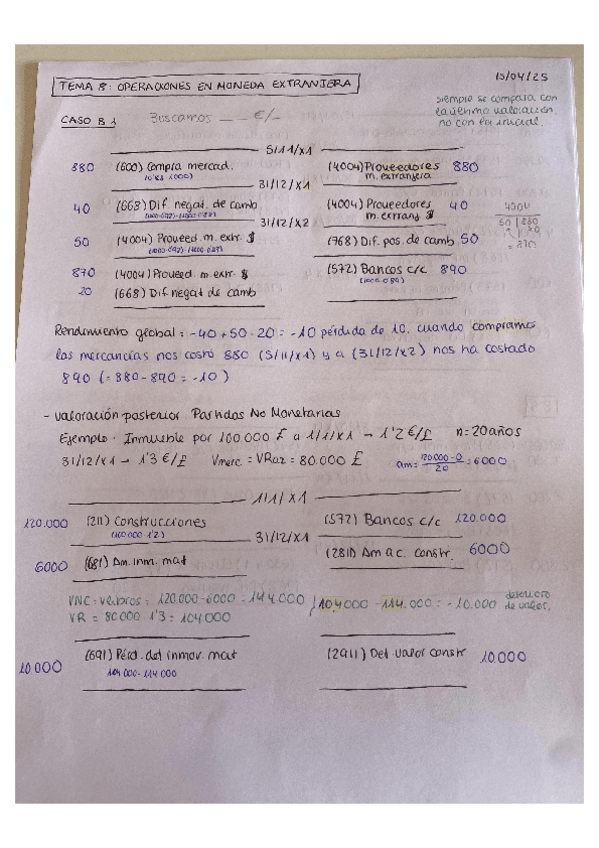 TEMA 8: OPERACIONES EN MONEDA EXTRANJERA
10/04/25
siempre se compara con
la última valoración,
no con la inicial.
CASO 8.1 Buscamos _ _ €/_
5/11/X1
880 (600) Compra mercad. (4004) Proveedores 880
(0'88·1000) m. extranjera
31/12/X1
40 (668) Dif negat. de camb. (4004) Proveedores 40
m. extranj $
31/12/X2
50 (4004) Proveed. m. extr. $ (768) Dif. pos. de camb. 50
4004
50 | 880
870 (4004) Proveed. m. extr. $ (572) Bancos c/c 890
(1000·0'89)
20 (668) Dif negat de camb
Rendimiento global = -40+50-20 = -10 pérdida de 10. cuando compramos
las mercancías nos costó 880 (5/11/X1) y a (31/12/X2) nos ha costado
890 (= 880-890 = -10)
- Valoración posterior Partidas No Monetarias
Ejemplo · Inmueble por 100.000 £ a 1/1/X1 → 1'2 €/£ n=20 años
31/12/X1 → 1'3 €/£ Vmerc = VRaz = 80.000 £ am = 120.000-0/20 = 6000
1/1/X1
120.000 (211) Construcciones (572) Bancos c/c 120.000
(100.000·1'2)
31/12/X1
6000 (681) Am. inm. mat (281) Am ac. constr. 6000
VNC = Vlibros = 120.000-6000 = 114.000 / 104.000 - 114.000 = -10.000 deterioro
VR = 80.000·1'3 = 104.000 de valor.
10.000 (691) Pérd. det inmov. mat (2911) Det valor constr 10.000
104.000-114.000